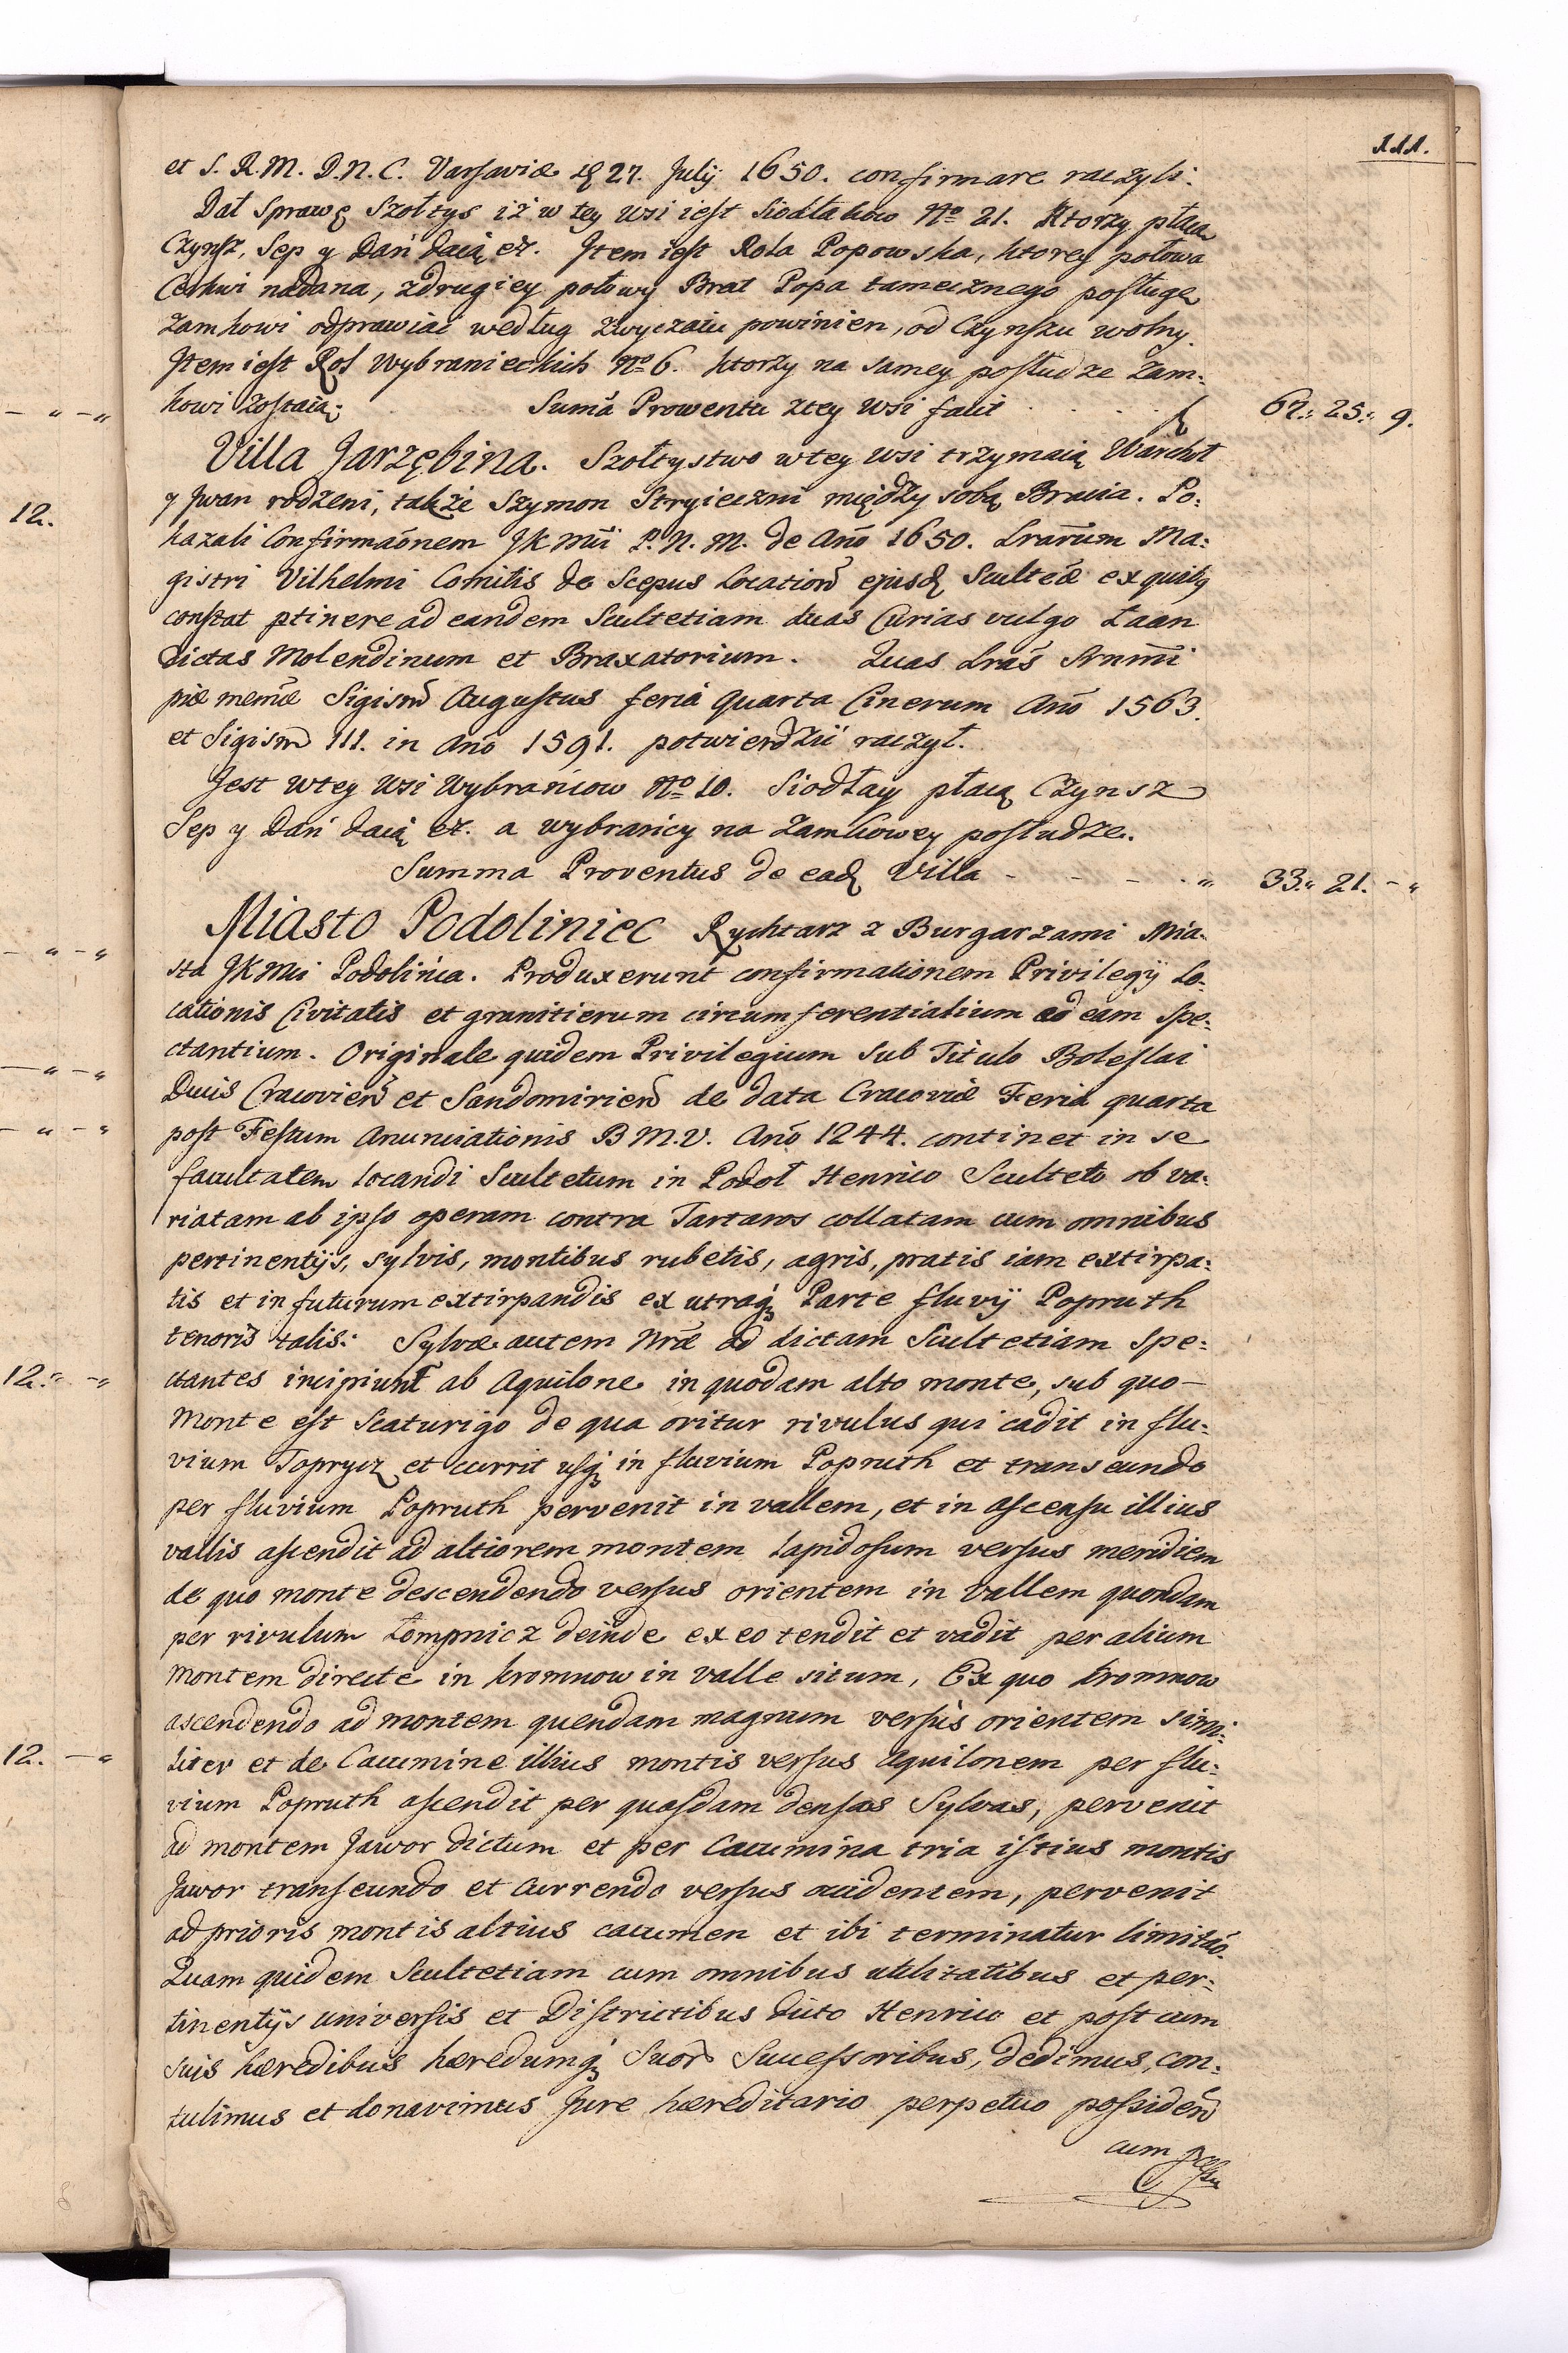 111.
et S. R. M. D. N. C. Varsaviæ 27. July 1650. confirmare raczyli.
Dał sprawę Szołtys iż w tey wsi iest Siodłakow No 21. Ktorzy płacą
Czynsz, Sep y Dań daią etc. Item iest Rola Popowska, ktorey połowa
Cerkwi nadana, z drugiey połowy Brat Popa tamecznego posługę
Zamkowi odprawiać według zwyczaiu powinien, od Czynszu wolny.
Item iest Rol Wybranieckich No 6. ktorzy na samey posłudze Zam:
kowi zostaią: Suma Prowentu z tey wsi facit f 67.: 25.: 9.
Villa Jarzębina. Szołtystwo w tey wsi trzymaią Warchoł
y Iwan rodzeni, także Szymon Stryieczni między sobą Bracia. Po:
kazali Confirmaõnem JKMci P. N. M. de Año 1650. Lrarum Ma:
gistri Vilhelmi Comitis de Scepus Location ejusd Scultetiæ ex quibq
constat ptinere ad eandem Scultetiam duas Curias vulgo Łaan
dictas Molendinum et Braxatorium. Quas Lras Srnmi
piæ memæ Sigism Augustus feria quarta Cinerum Año 1563.
et Sigism III. in Año 1591. potwierdzić raczył.
Jest w tey wsi Wybrańcow No 10. Siodłacy płacą Czynsz
Sep y Dań daią etc. a wybrańcy na Zamkowey posłudze.
Summa Proventus de ead Villa - - - " 33." 21. - "
Miasto Podoliniec Rychtarz z Burgarzami Mia:
sta JKMci Podolińca. Produxerunt confirmationem Privilegÿ Lo:
cationis Civitatis et granitierum circumferentialium ad eam spe:
ctantium. Originale quidem Privilegium sub Titulo Boleslai
Ducis Cracovien et Sandomirien de data Cracoviæ Feria quarta
post Festum Anunciationis B M. V. Año 1244. continet in se
facultatem locandi Scultetum in Podol Henrico Sculteto ob va:
riatam ab ipso operam contra Tartaros collatam cum omnibus
pertinentijs, sylvis, montibus rubetis, agris, pratis iam extirpa:
tis et in futurum extirpandis ex utraq Parte fluvÿ Popruth
tenoris talis: Sylvæ autem Nræ ad dictam Scultetiam spe:
ctantes incipiunt ab Aquilone in quodam alto monte, sub quo
Monte est Scaturigo de qua oritur rivulus qui cadit in flu:
vium Toprycz et currit usq in fluvium Popruth et transeundo
per fluvium Popruth pervenit in vallem, et in ascensu illius
vallis ascendit ad altiorem montem lapidosum versus meridiem
de quo monte descendendo versus orientem in vallem quondam
per rivulum Łompnicz deinde ex eo tendit et vadit per alium
Montem directe in kromnow in valle situm, Ex quo kromnow
ascendendo ad montem quendam magnum versus orientem simi:
liter et de Cacumine illius montis versus Aquilonem per flu:
vium Popruth ascendit per quasdam densas Sylvas, pervenit
ad montem Jawor dictum et per Cacumina tria istius montis
Jawor transeundo et currendo versus occidentem, pervenit
ad prioris montis altius cacumen et ibi terminatur limitao.
Quam quidem Scultetiam cum omnibus utilitatibus et per:
tinentijs universis et Districtibus dicto Henrico et post eum
suis hæredibus hæredumq suor Successoribus, dedimus, con:
tulimus et donavimus Jure hæreditario perpetuo possiden
cum
12.
12." - "
12. - "